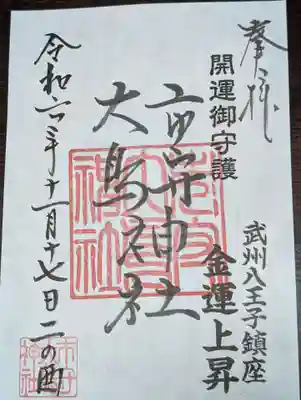 奉拝
開運御守護
武州八王子鎮座
金運上昇
市守神社
大鳥神社
令和六年十一月十七日二の酉
市守
神社